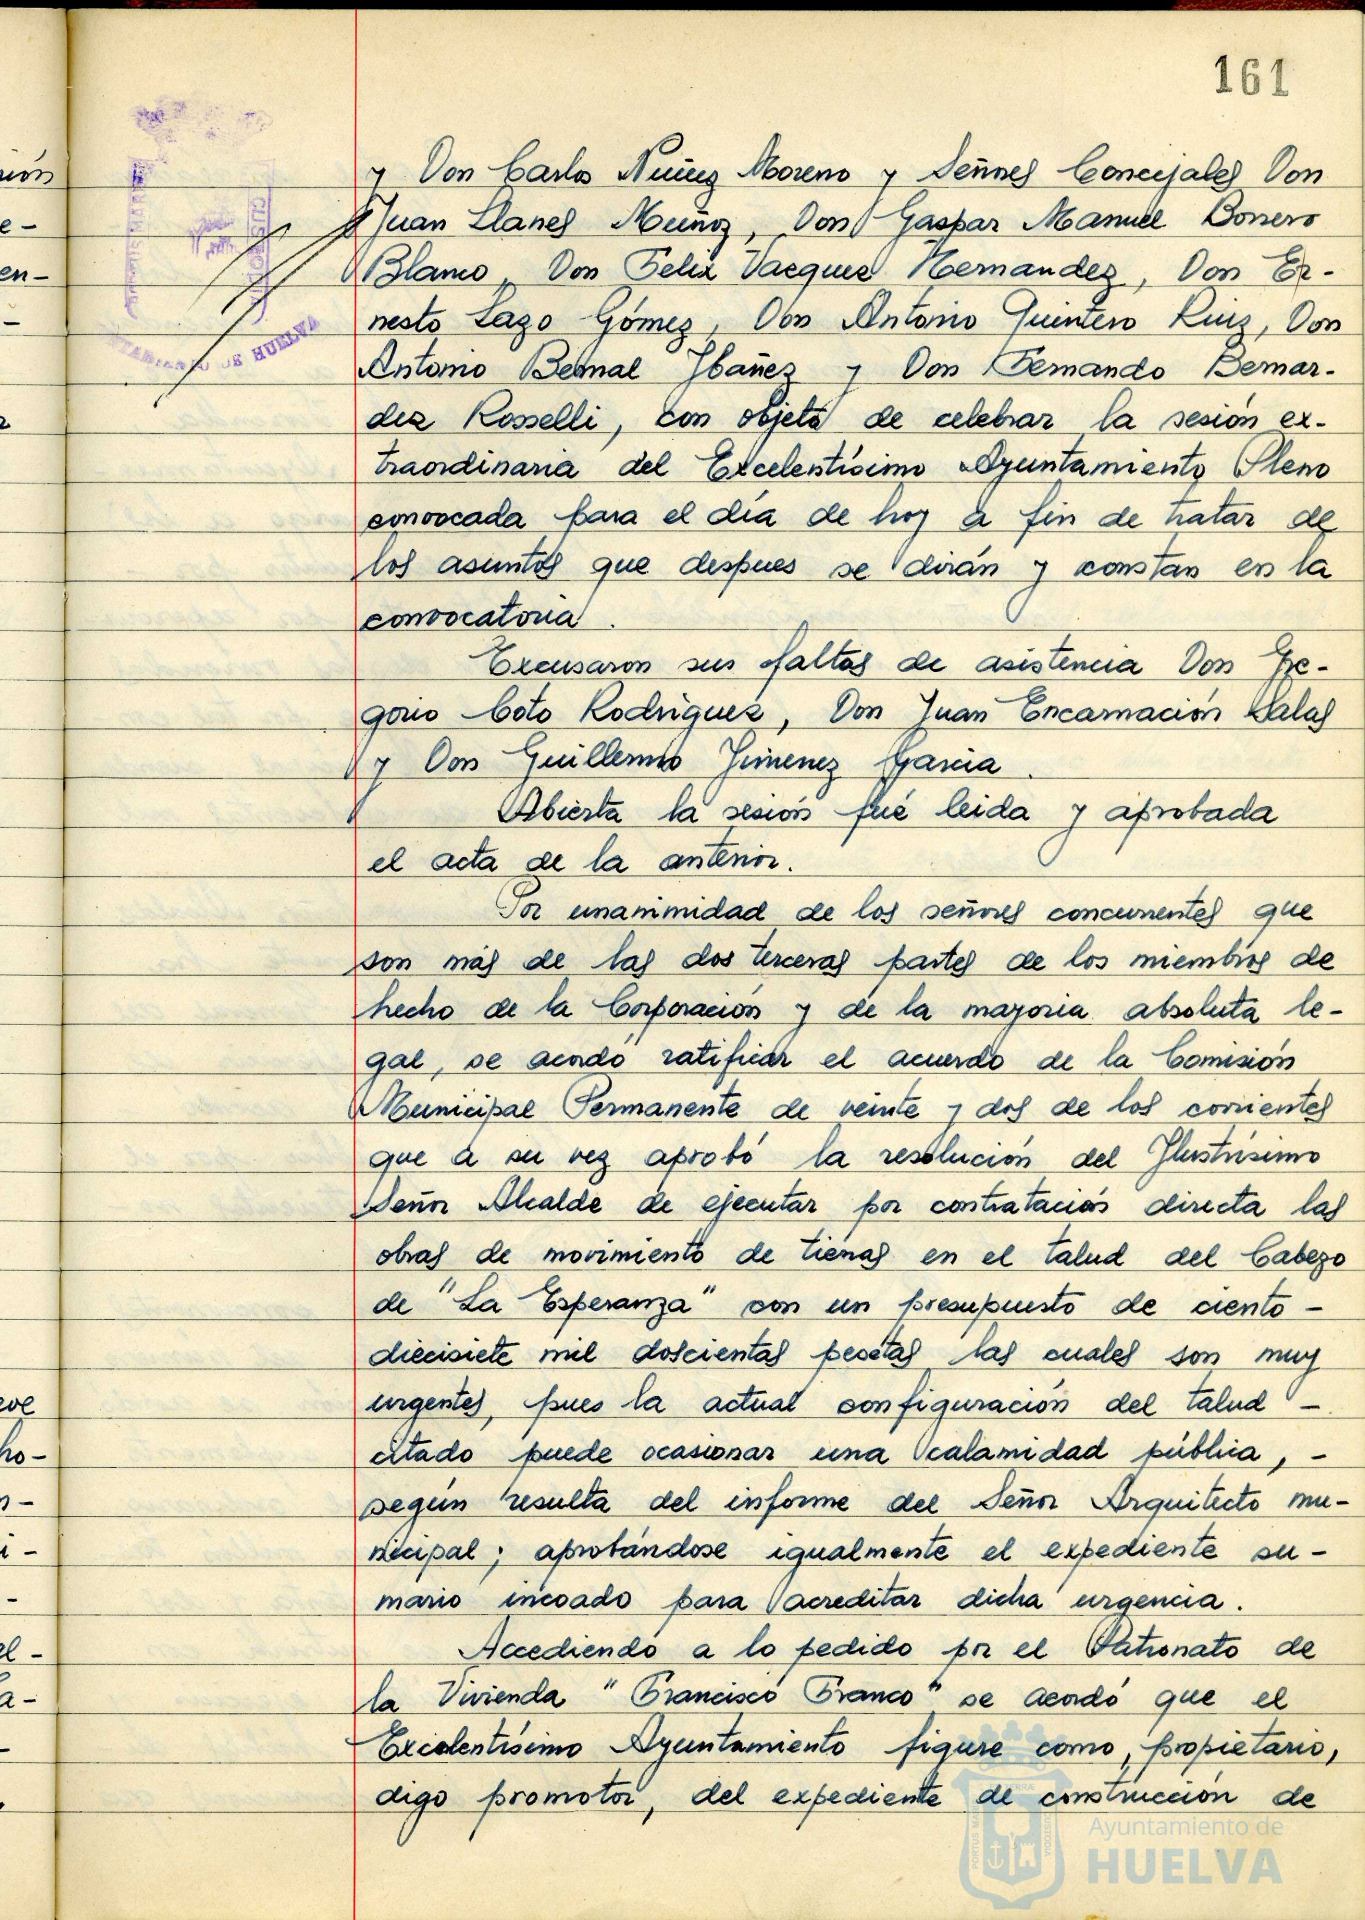 161
y Don Carlos Nuñez Moreno y Señores Concejales Don
Juan Llanes Muñoz, Don Gaspar Manuel Borrero
Blanco, Don Felix Vazquez Hernandez, Don Er-
nesto Lazo Gómez, Don Antonio Quintero Ruiz, Don
Antonio Bernal Ibañez y Don Fernando Bernar-
dez Rosselli, con objeto de celebrar la sesión ex-
traordinaria del Excelentísimo Ayuntamiento Pleno
convocada para el día de hoy a fin de tratar de
los asuntos que despues se dirán y constan en la
convocatoria.
Excusaron sus faltas de asistencia Don Gre-
gorio Coto Rodriguez, Don Juan Encarnación Salas
y Don Guillermo Jimenez Garcia.
Abierta la sesión fué leida y aprobada
el acta de la anterior.
Por unanimidad de los señores concurrentes que
son más de las dos terceras partes de los miembros de
hecho de la Corporación y de la mayoria absoluta le-
gal, se acordó ratificar el acuerdo de la Comisión
Municipal Permanente de veinte y dos de los corrientes
que a su vez aprobó la resolución del Ilustrísimo
Señor Alcalde de ejecutar por contratación directa las
obras de movimiento de tierras en el talud del Cabezo
de "La Esperanza" con un presupuesto de ciento -
diecisiete mil doscientas pesetas las cuales son muy
urgentes, pues la actual configuración del talud -
citado puede ocasionar una calamidad pública, -
según resulta del informe del Señor Arquitecto mu-
nicipal; aprobándose igualmente el expediente su-
mario incoado para acreditar dicha urgencia.
Accediendo a lo pedido por el Patronato de
la Vivienda "Francisco Franco" se acordó que el
Excelentísimo Ayuntamiento figure como, propietario,
digo promotor, del expediente de construcción de
Ayuntamiento de
HUELVA